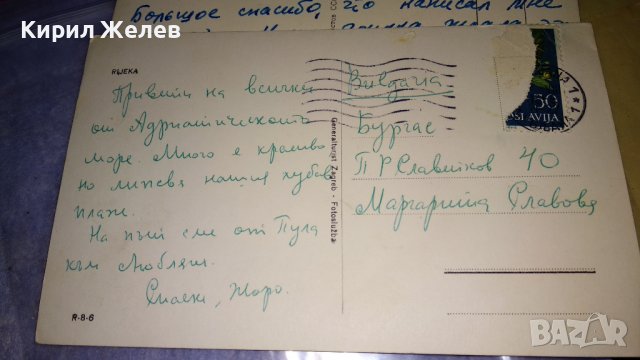 Большое спасибо, что написал мне
Кирил Желев
RIJEKA
Привети на всички
от Адриатическото
море. Много е красиво
но липсва нашия хубав
плаж.
На път сме от Пула
към Любляна.
Спаски, Жоро.
R-8-6
Generalturist Zagreb - Fotoslužba
Bulgaria
Бургас
П Р Славейков 40
Маргарита Славова
50
OSLAVIJA
BAZAR
bazar.bg